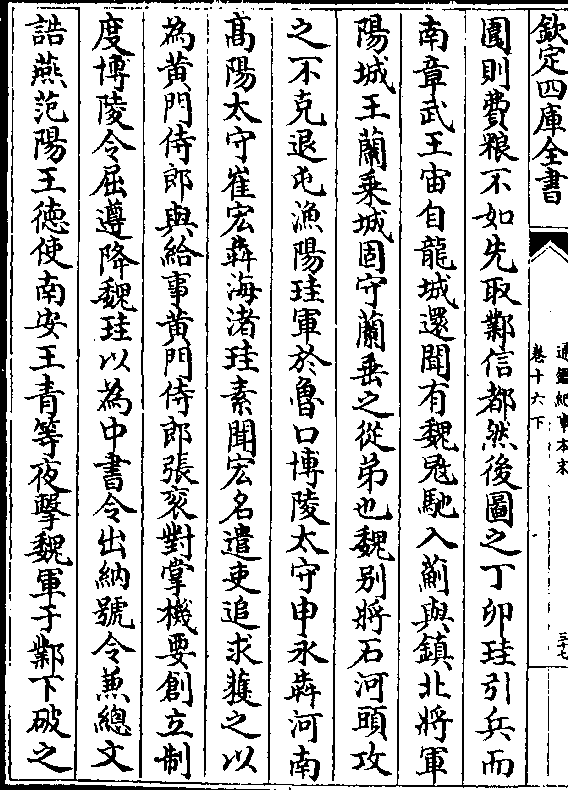 欽定四庫全書
通鑑紀事本末
卷十六下
三七
圍則費粮不如先取鄴信都然後圖之丁卯珪引兵而
南章武王宙自龍城還聞有魏冦馳入薊與鎮北將軍
陽城王蘭乗城固守蘭垂之從弟也魏别將石河頭攻
之不克退屯漁陽珪軍於魯口博陵太守申永犇河南
髙陽太守崔宏犇海渚珪素聞宏名遣吏追求獲之以
為黄門侍郎與給事黄門侍郎張衮對掌機要創立制
度博陵令屈遵降魏珪以為中書令出納號令兼總文
誥燕范陽王徳使南安王青等夜擊魏軍于鄴下破之